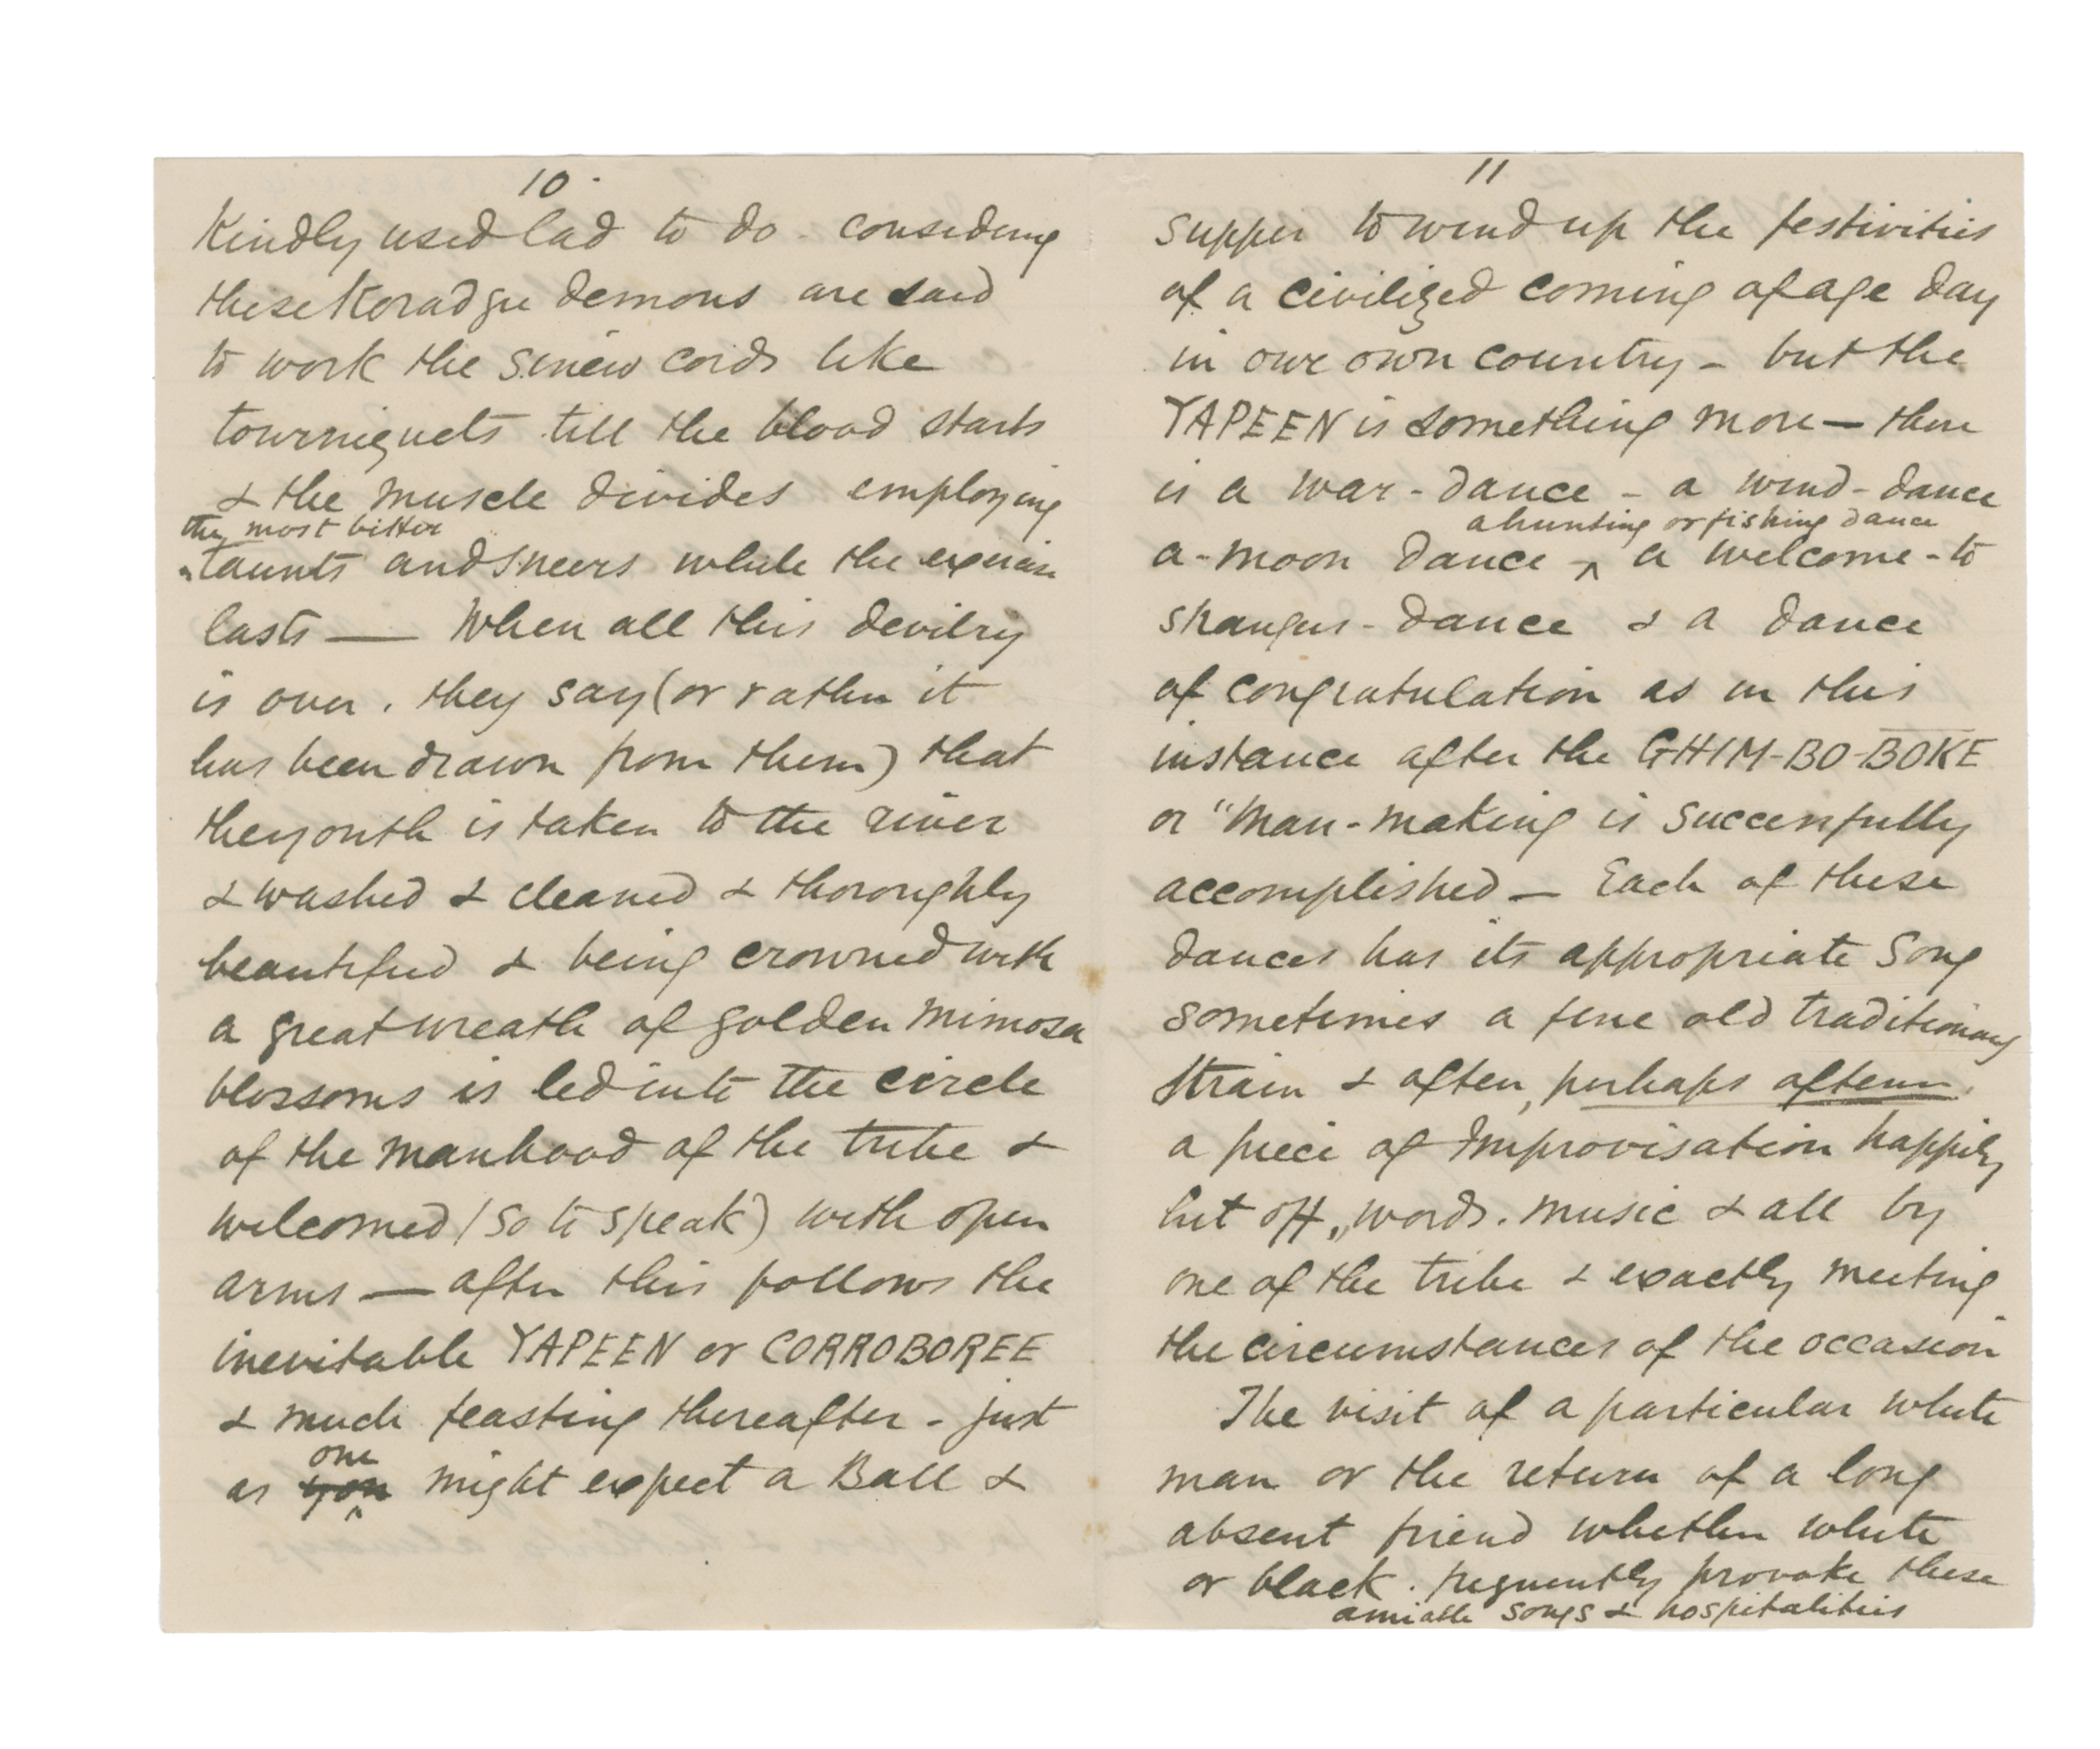 10.
Kindly used lad to do - considering
these Koradgee demons are said
to work the sinew cords like
tourniquets till the blood starts
& the muscle divides employing
the most bitter
taunts and sneers while the exercise
lasts — When all this devilry
is over. they say (or rather it
has been drawn from them) that
the youth is taken to the river
& washed & cleaned & thoroughly
beautified & being crowned with
a great wreath of golden mimosa
blossoms is led into the circle
of the manhood of the tribe &
welcomed (so to speak) with open
arms — after this follows the
inevitable YAPEEN or CORROBOREE
& much feasting thereafter - just
one
as you might expect a Ball &
11
supper to wind up the festivities
of a civilized coming of age day
in our own country - but the
YAPEEN is something more — there
is a war-dance - a wind-dance
a hunting or fishing dance
a-moon dance - ^ a welcome-to
strangers-dance & a dance
of congratulation as in this
instance after the GHIM-BO-BOKE
or "Man-making is successfully
accomplished — Each of these
dances has its appropriate song
sometimes a fine old traditionary
strain & often, perhaps oftener,
a piece of Improvisation happily
hit off, words. music & all by
one of the tribe & exactly meeting
the circumstances of the occasion
The visit of a particular white
man or the return of a long
absent friend whether white
or black. frequently provoke these
amiable songs & hospitalities